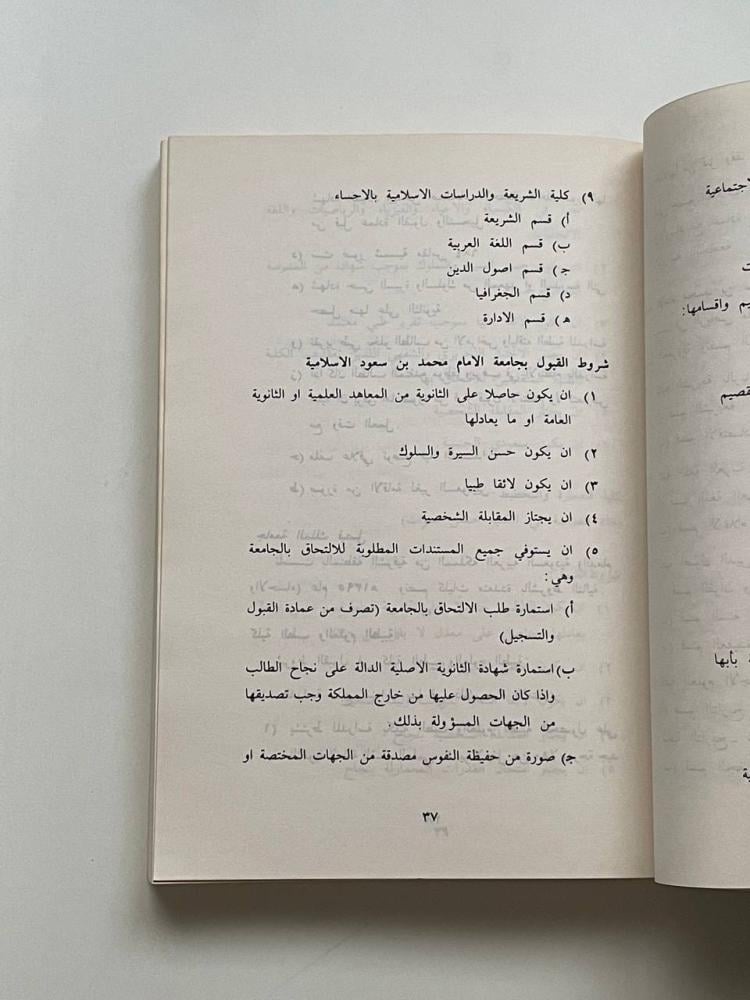 ٩) كلية الشريعة والدراسات الاسلامية بالاحساء
أ) قسم الشريعة
ب) قسم اللغة العربية
ج) قسم اصول الدين
د) قسم الجغرافيا
ه) قسم الادارة
شروط القبول بجامعة الامام محمد بن سعود الاسلامية
١) ان يكون حاصلا على الثانوية من المعاهد العلمية او الثانوية
العامة او ما يعادلها
٢) ان يكون حسن السيرة والسلوك
٣) ان يكون لائقا طبيا
٤) ان يجتاز المقابلة الشخصية
٥) ان يستوفي جميع المستندات المطلوبة للالتحاق بالجامعة
وهي:
أ) استمارة طلب الالتحاق بالجامعة (تصرف من عمادة القبول
والتسجيل)
ب) استمارة شهادة الثانوية الاصلية الدالة على نجاح الطالب
واذا كان الحصول عليها من خارج المملكة وجب تصديقها
من الجهات المسؤولة بذلك.
ج) صورة من حفيظة النفوس مصدقة من الجهات المختصة او
٣٧
يم واقسامها:
بأبها